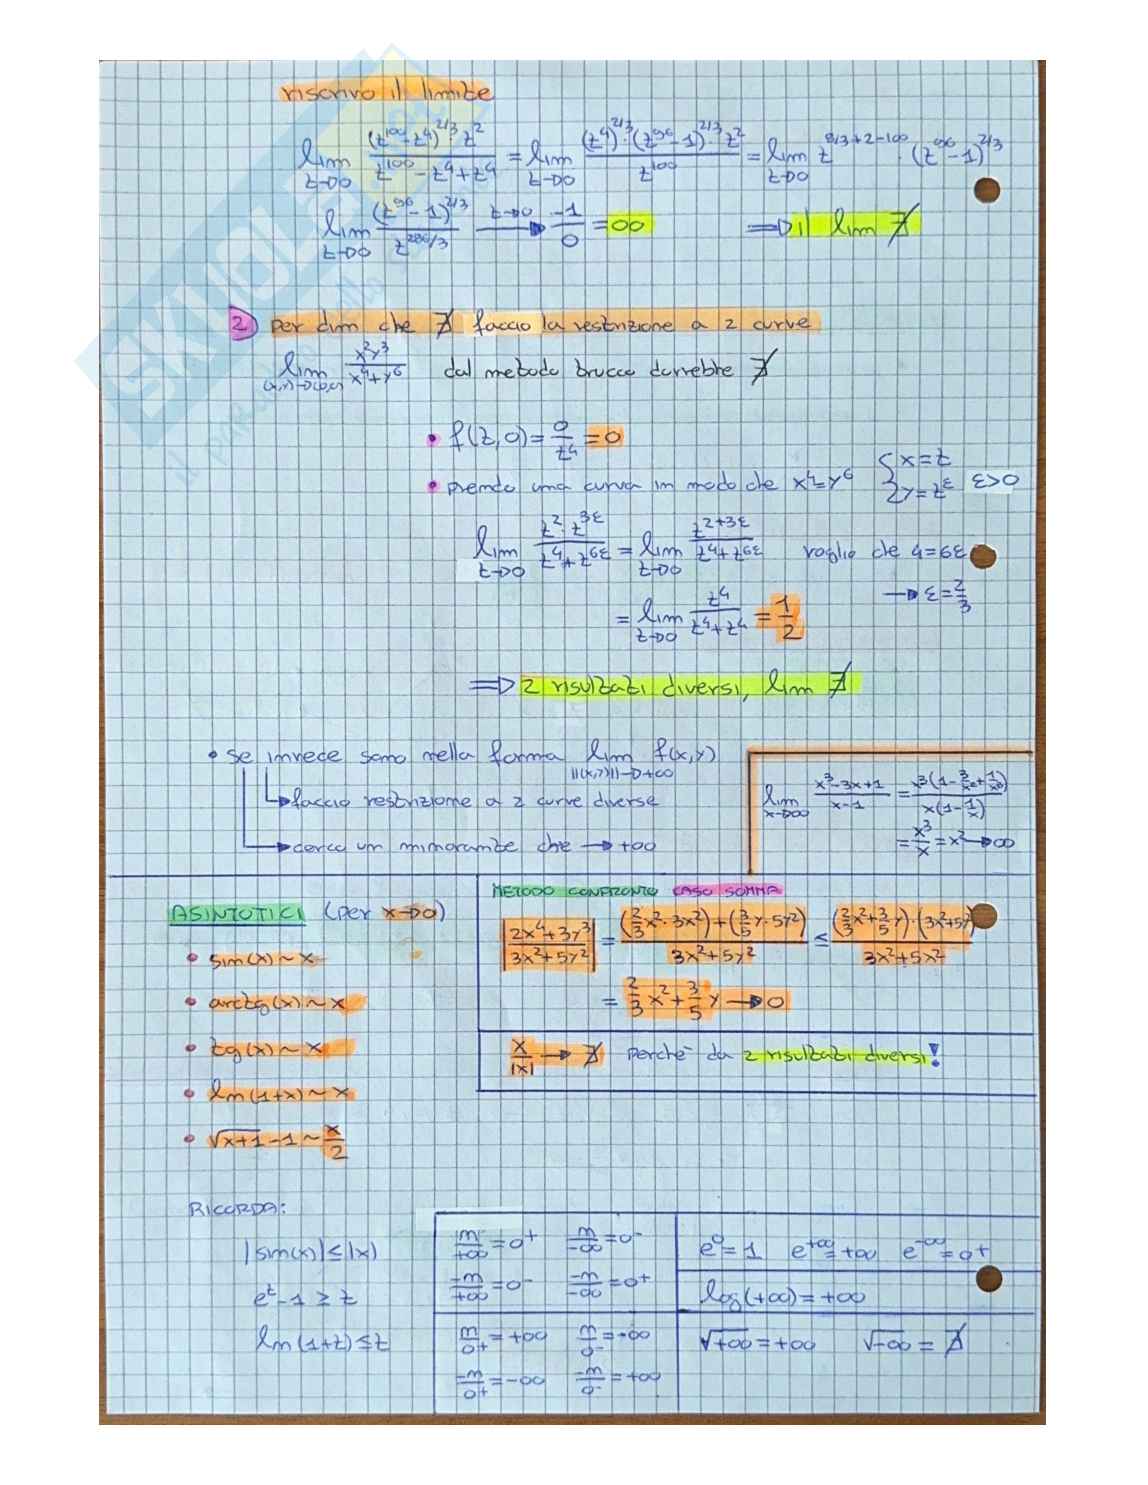 riscrivo il limite
lim t→0 (t^100 - t^4)^2/3 · t^2 / t^100 - t^4 + t^4 = lim t→0 (t^4)^2/3 · (t^96 - 1)^2/3 · t^2 / t^100 = lim t→0 t^8/3+2-100 · (t^96 - 1)^2/3
lim t→0 (t^96 - 1)^2/3 / t^286/3 t→0 → -1/0 = ∞ ⇒ il lim ∄
2) per dim che ∄ faccio la restrizione a 2 curve
lim (x,y)→(0,0) x^2y^3 / x^4+y^6 dal metodo brucco dovrebbe ∄
• f(t,0) = 0/t^4 = 0
• prendo una curva in modo che x^4=y^6 { x=t y=t^ε ε>0
lim t→0 t^2 · t^3ε / t^4+t^6ε = lim t→0 t^2+3ε / t^4+t^6ε voglio che 4=6ε
→ ε=2/3
= lim t→0 t^4 / t^4+t^4 = 1/2
⇒ 2 risultati diversi, lim ∄
• se invece sono nella forma lim ||(x,y)||→+∞ f(x,y)
→ faccio restrizione a 2 curve diverse
→ cerco un minorante che → +∞
lim x→∞ x^3-3x+1 / x-1 = x^3(1-3/x^2+1/x^3) / x(1-1/x)
= x^3/x = x^2 → ∞
ASINTOTICI (per x→0)
• sin(x) ~ x
• arctg(x) ~ x
• tg(x) ~ x
• ln(1+x) ~ x
• √x+1 - 1 ~ x/2
METODO CONFRONTO CASO SOMMA
|2x^4+3y^3 / 3x^2+5y^2| = (2/3 x^2 · 3x^2) + (3/5 y · 5y^2) / 3x^2+5y^2 ≤ (2/3 x^2 + 3/5 y) · (3x^2+5y^2) / 3x^2+5x^2
= 2/3 x^2 + 3/5 y → 0
x/|x| → ∄ perché da 2 risultati diversi!
RICORDA:
|sin(x)| ≤ |x|
e^t - 1 ≥ t
ln(1+t) ≤ t
n/+∞ = 0^+ n/-∞ = 0^-
-n/+∞ = 0^- -n/-∞ = 0^+
n/0^+ = +∞ n/0^- = -∞
-n/0^+ = -∞ -n/0^- = +∞
e^0 = 1 e^+∞ = +∞ e^-∞ = 0^+
log(+∞) = +∞
√+∞ = +∞ √-∞ = ∄
SKUOLA.net